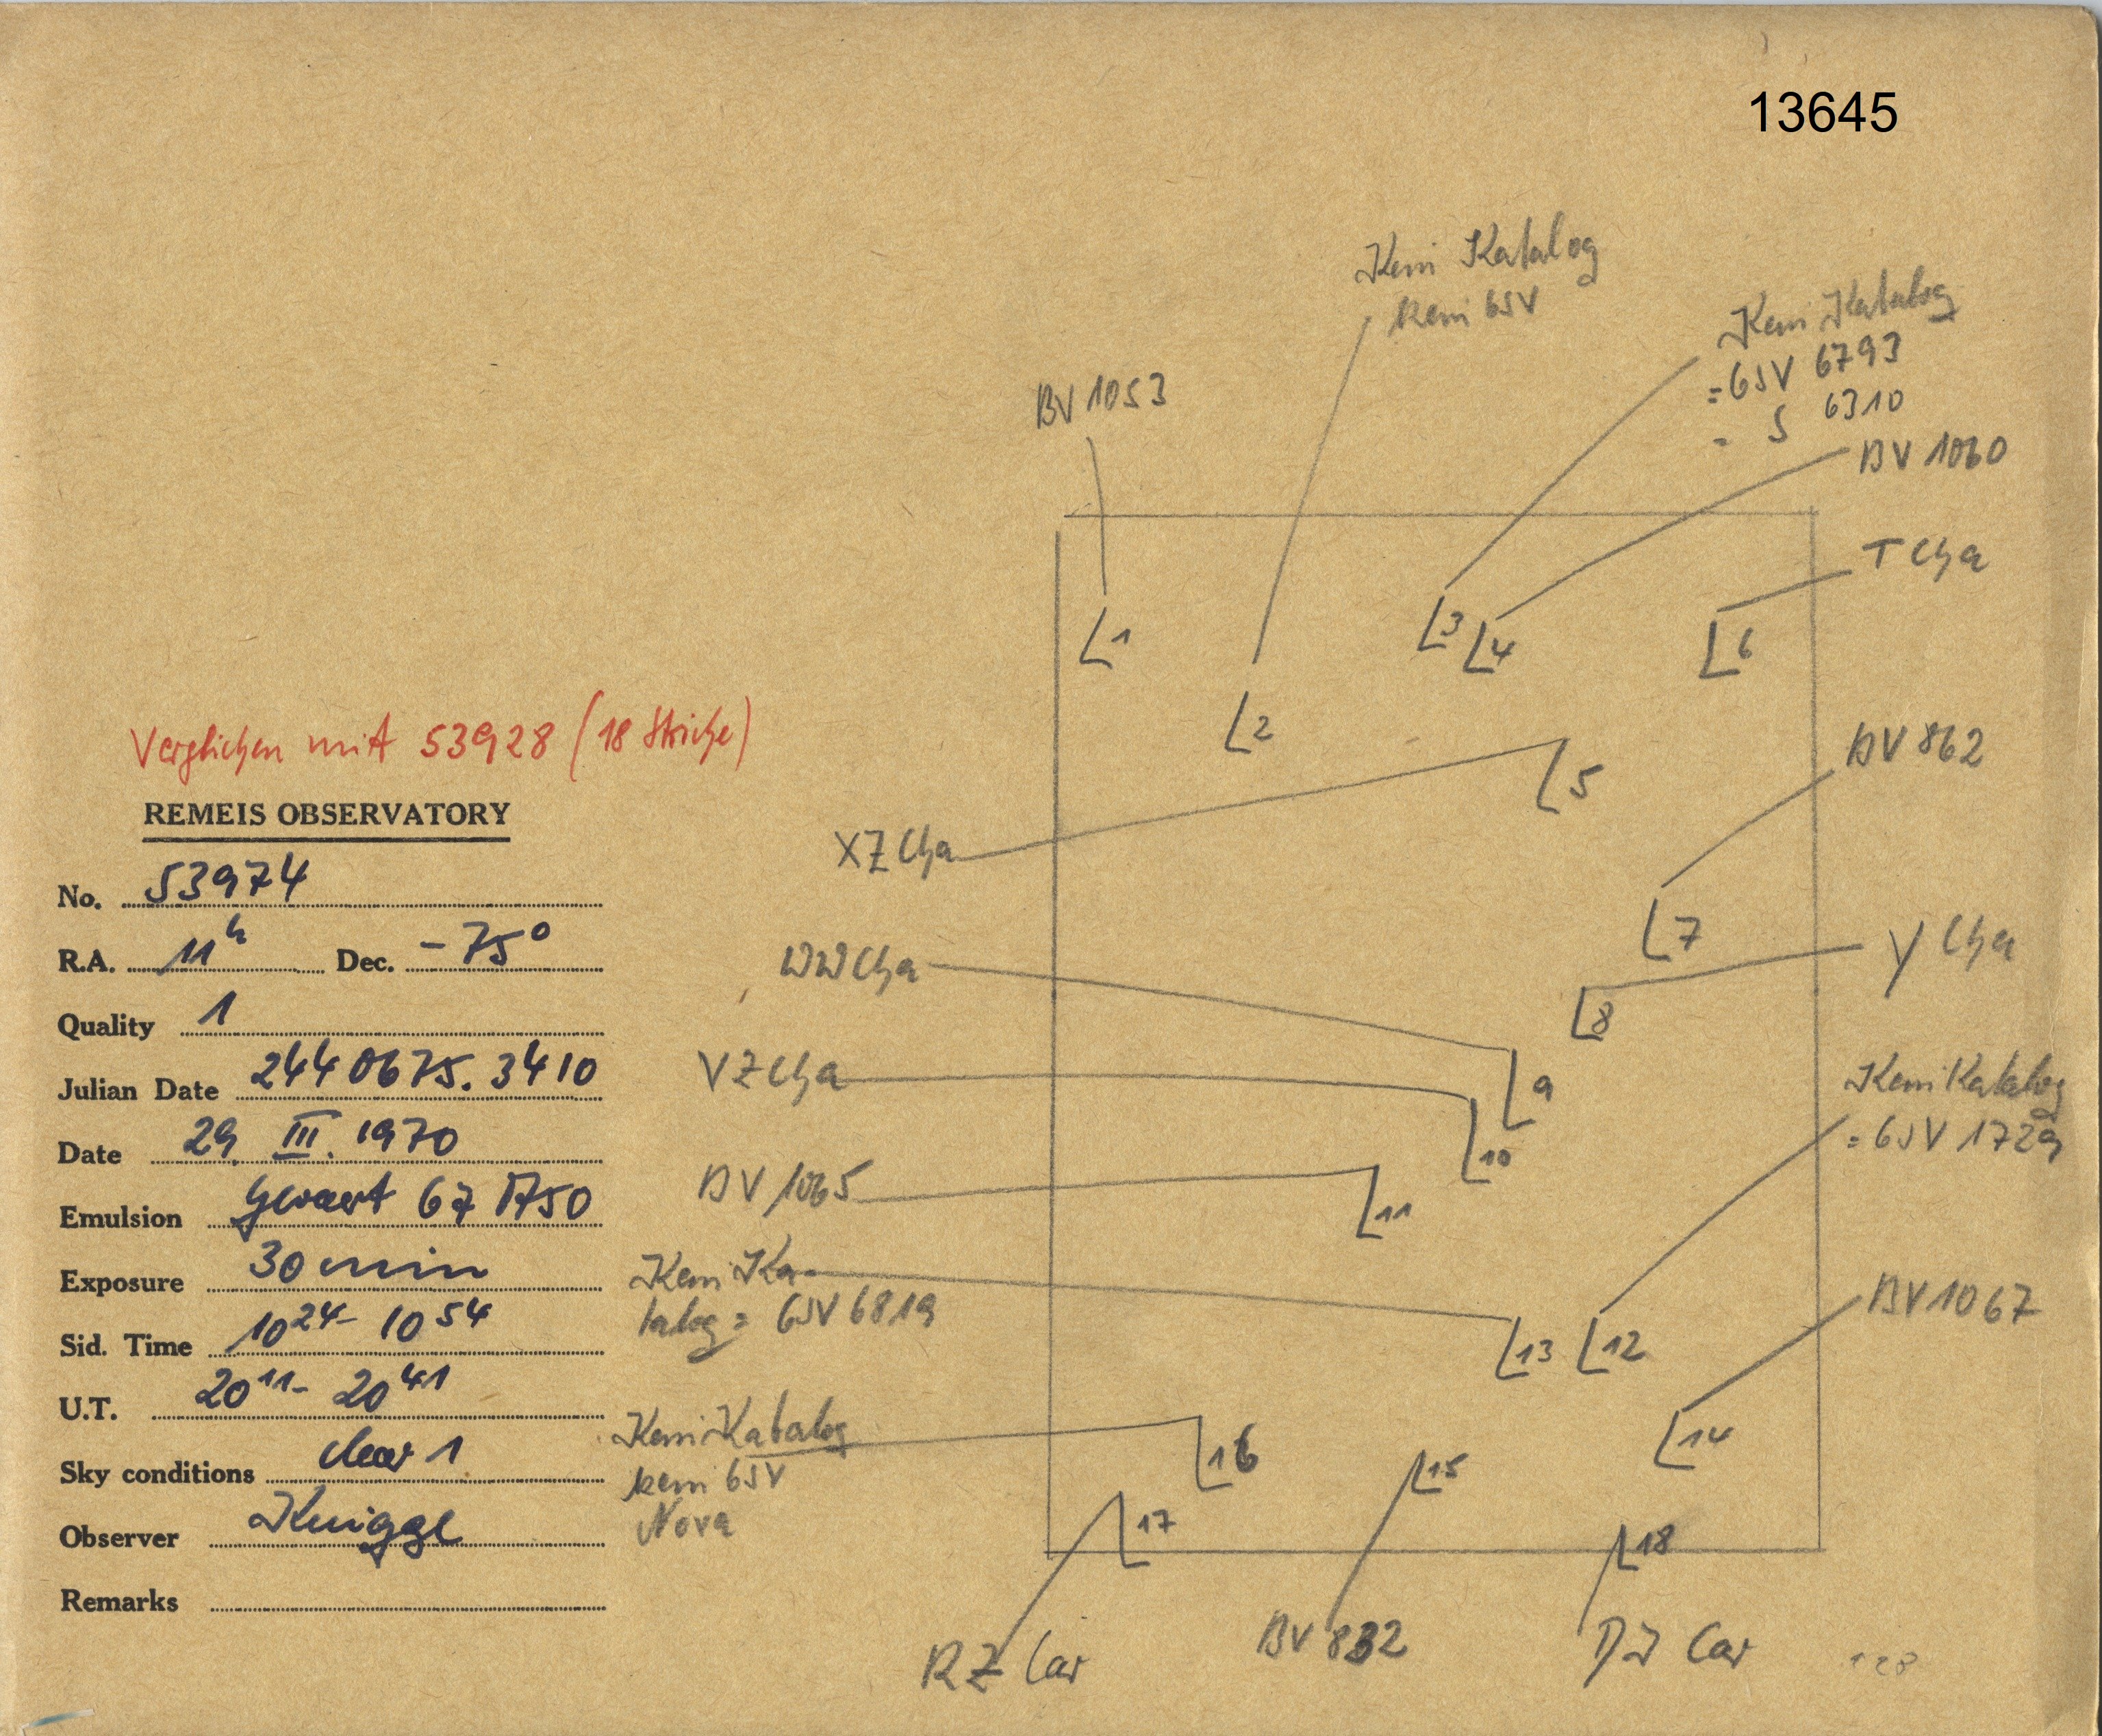 13645
Kein Katalog
kein GSV
Kein Katalog
= GSV 6793
= S 6310
BV 1053
BV 1060
T Cha
1
2
3
4
5
6
Verglichen mit 53928 (18 Striche)
BV 862
REMEIS OBSERVATORY
XZ Cha
No. 53974
7
R.A. 11h Dec. -75°
WW Cha
Y Cha
8
Quality 1
Julian Date 244 0675.3410
VZ Cha
9
Kein Katalog
= GSV 1729
Date 29. III. 1970
10
Emulsion Gevaert 67 A50
BV 1065
11
Exposure 30 min
Kein Ka-
talog = GSV 6819
BV 1067
13
12
Sid. Time 10 24 - 10 54
U.T. 20 11 - 20 41
Kein Katalog
kein GSV
Nova
14
16
15
Sky conditions clear 1
Observer Knigge
17
18
Remarks
RZ Car
BV 832
DI Car
128